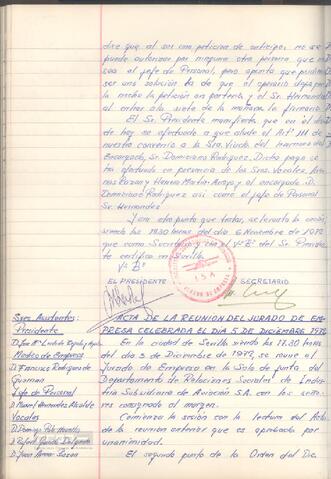 dice que al ser una petición de anticipo, no se
puede autorizar por ninguna otra persona que no
sea el Jefe de Personal, pero apunta que pudiera
ser una solución la de que el operario deje por
la noche la petición en portería y el Sr. Hernández
al entrar a las siete de la mañana lo firmaría.
El Sr. Presidente manifiesta que en el día
de hoy ha efectuado a que alude el Artº 111 de
nuestro convenio a la Sra. Viuda del hermano del
Encargado, Sr. Domiciano Rodríguez. Dicho pago se
ha efectuado en presencia de los Sres. Vocales,
y Martín Arroyo y el encargado D.
Domiciano Rodríguez así como el Jefe de Personal
Sr. Hernández
Y sin otro punto que tratar, se levanta la sesión
siendo las 18.30 horas del día 6 Noviembre de 1972
que como Secretario y con el Vº Bº del Sr. Presidente
certifico en Sevilla.
Vº Bº
EL PRESIDENTE
SECRETARIO
I S A
Sres. Asistentes:
Presidente
D. José Mª
Médico de Empresa
D. Francisco Rodríguez de
Guzmán
Jefe de Personal
D. Manuel Hernández Alcalde
Vocales
D. Domingo
D. Rafael Garrido Delgado
D. Juan Arenas
ACTA DE LA REUNION DEL JURADO DE EM-
PRESA CELEBRADA EL DIA 5 DE DICIEMBRE 1972
En la ciudad de Sevilla siendo las 17.30 horas
del día 5 de Diciembre de 1972, se reune el
Jurado de Empresa en la Sala de junta del
Departamento de Relaciones Sociales de Indus-
tria Subsidiaria de Aviación S.A. con los seño-
res consignado al margen.
Comienza la sesión con la lectura del Acta
de la reunión anterior que es aprobada por
unanimidad.
El segundo punto de la Orden del Dia